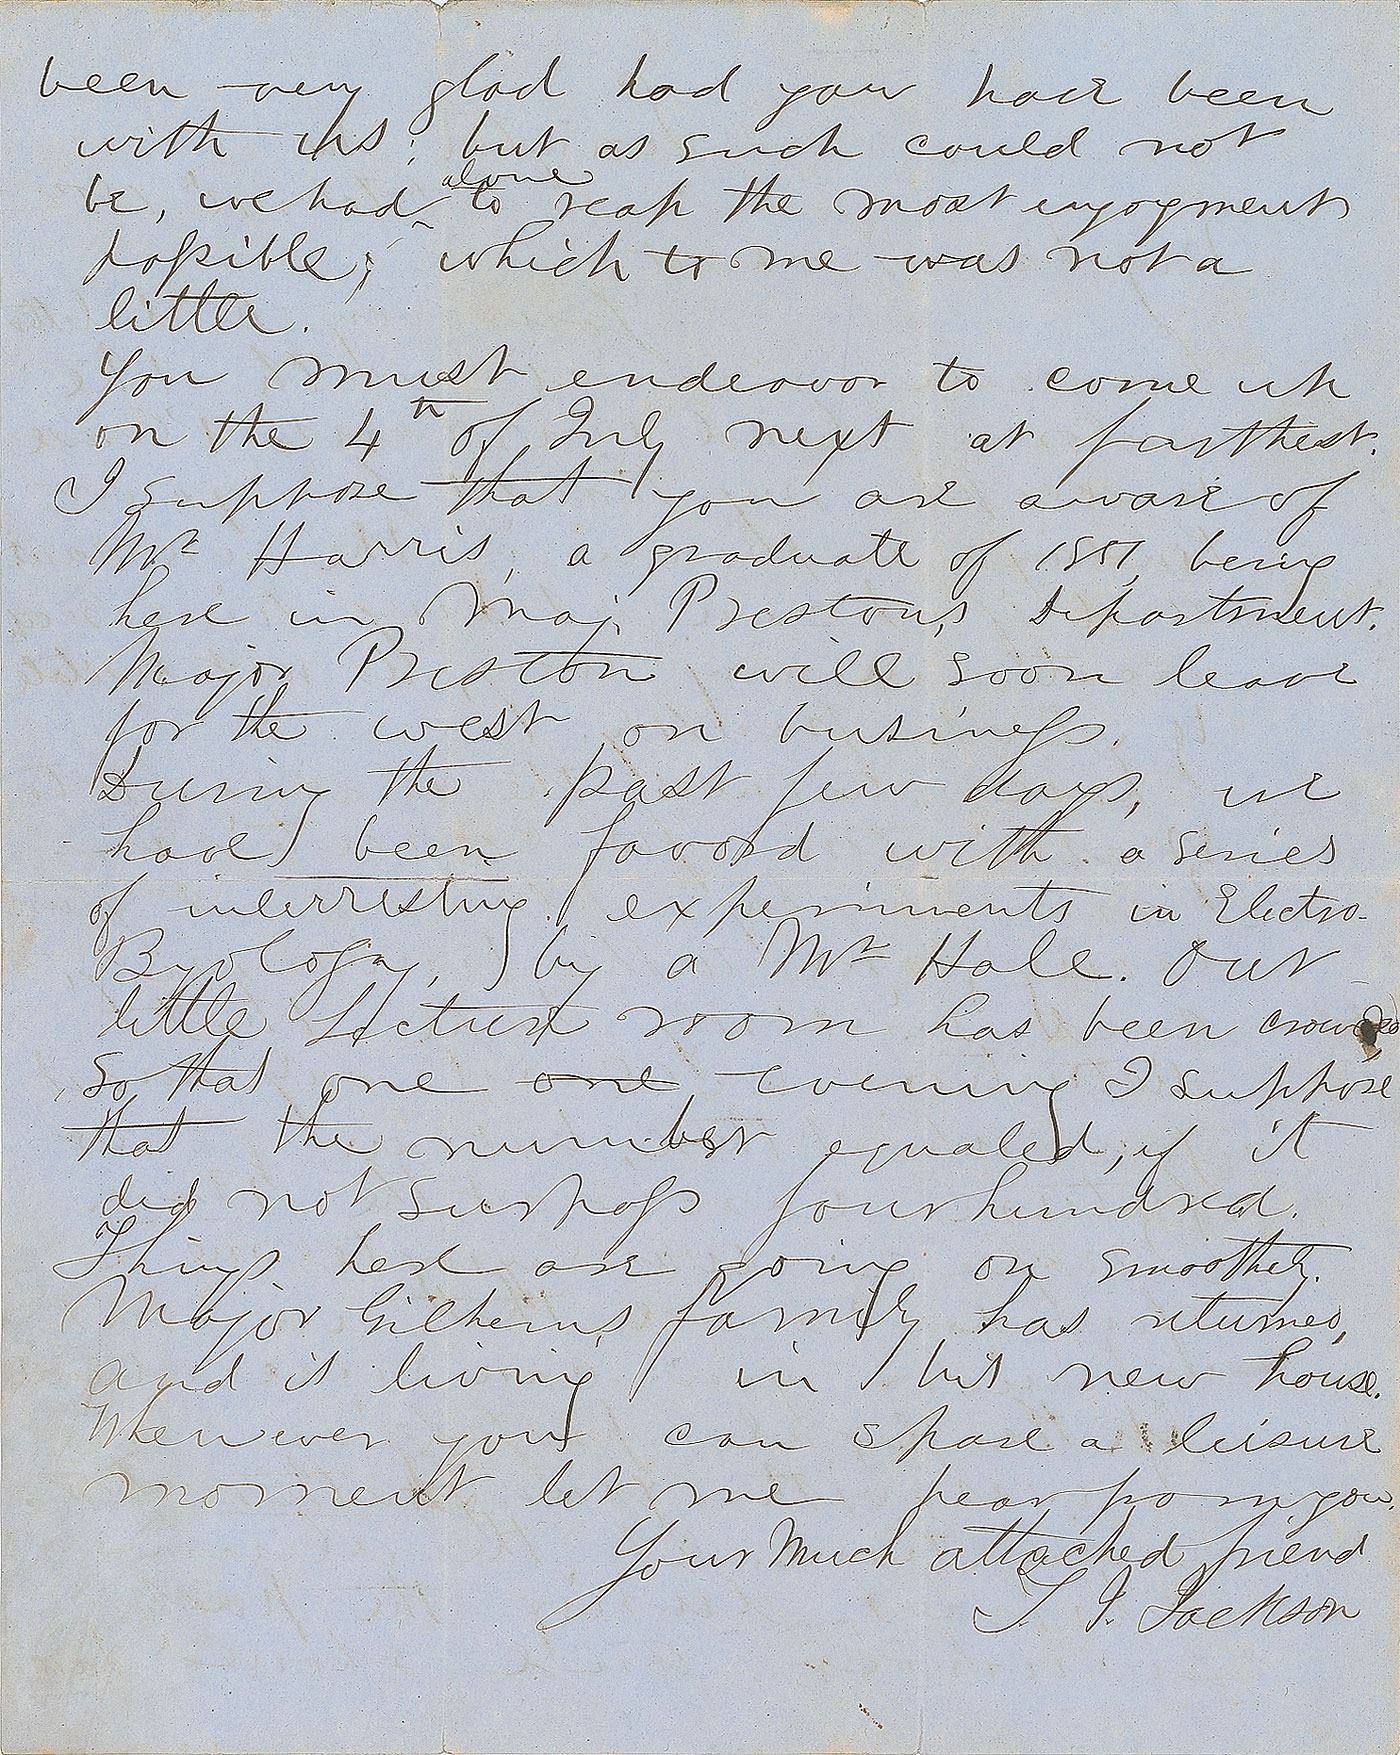 been very glad had you have been
with us; but as such could not
be, we had ^alone to reap the most enjoyment
possible; which to me was not a
little.
You must endeavor to come up
on the 4th of July next at farthest.
I suppose that you are aware of
Mr Harris, a graduate of 1851, being
here in Maj. Preston's Department.
Major Preston will soon leave
for the west on business.
During the past few days, we
have been favord with a series
of interresting experiments in Electro-
Byology, by a Mr Hale. Our
little Lecture room has been crowded
so that one one evening I suppose
that the number equaled, if it
did not surpass four hundred.
Things here are going on smoothly.
Major Gilham's family has returned,
and is living in his new house.
Whenever you can spare a leisure
moment let me hear from you.
Your much attached friend
T. J. Jackson